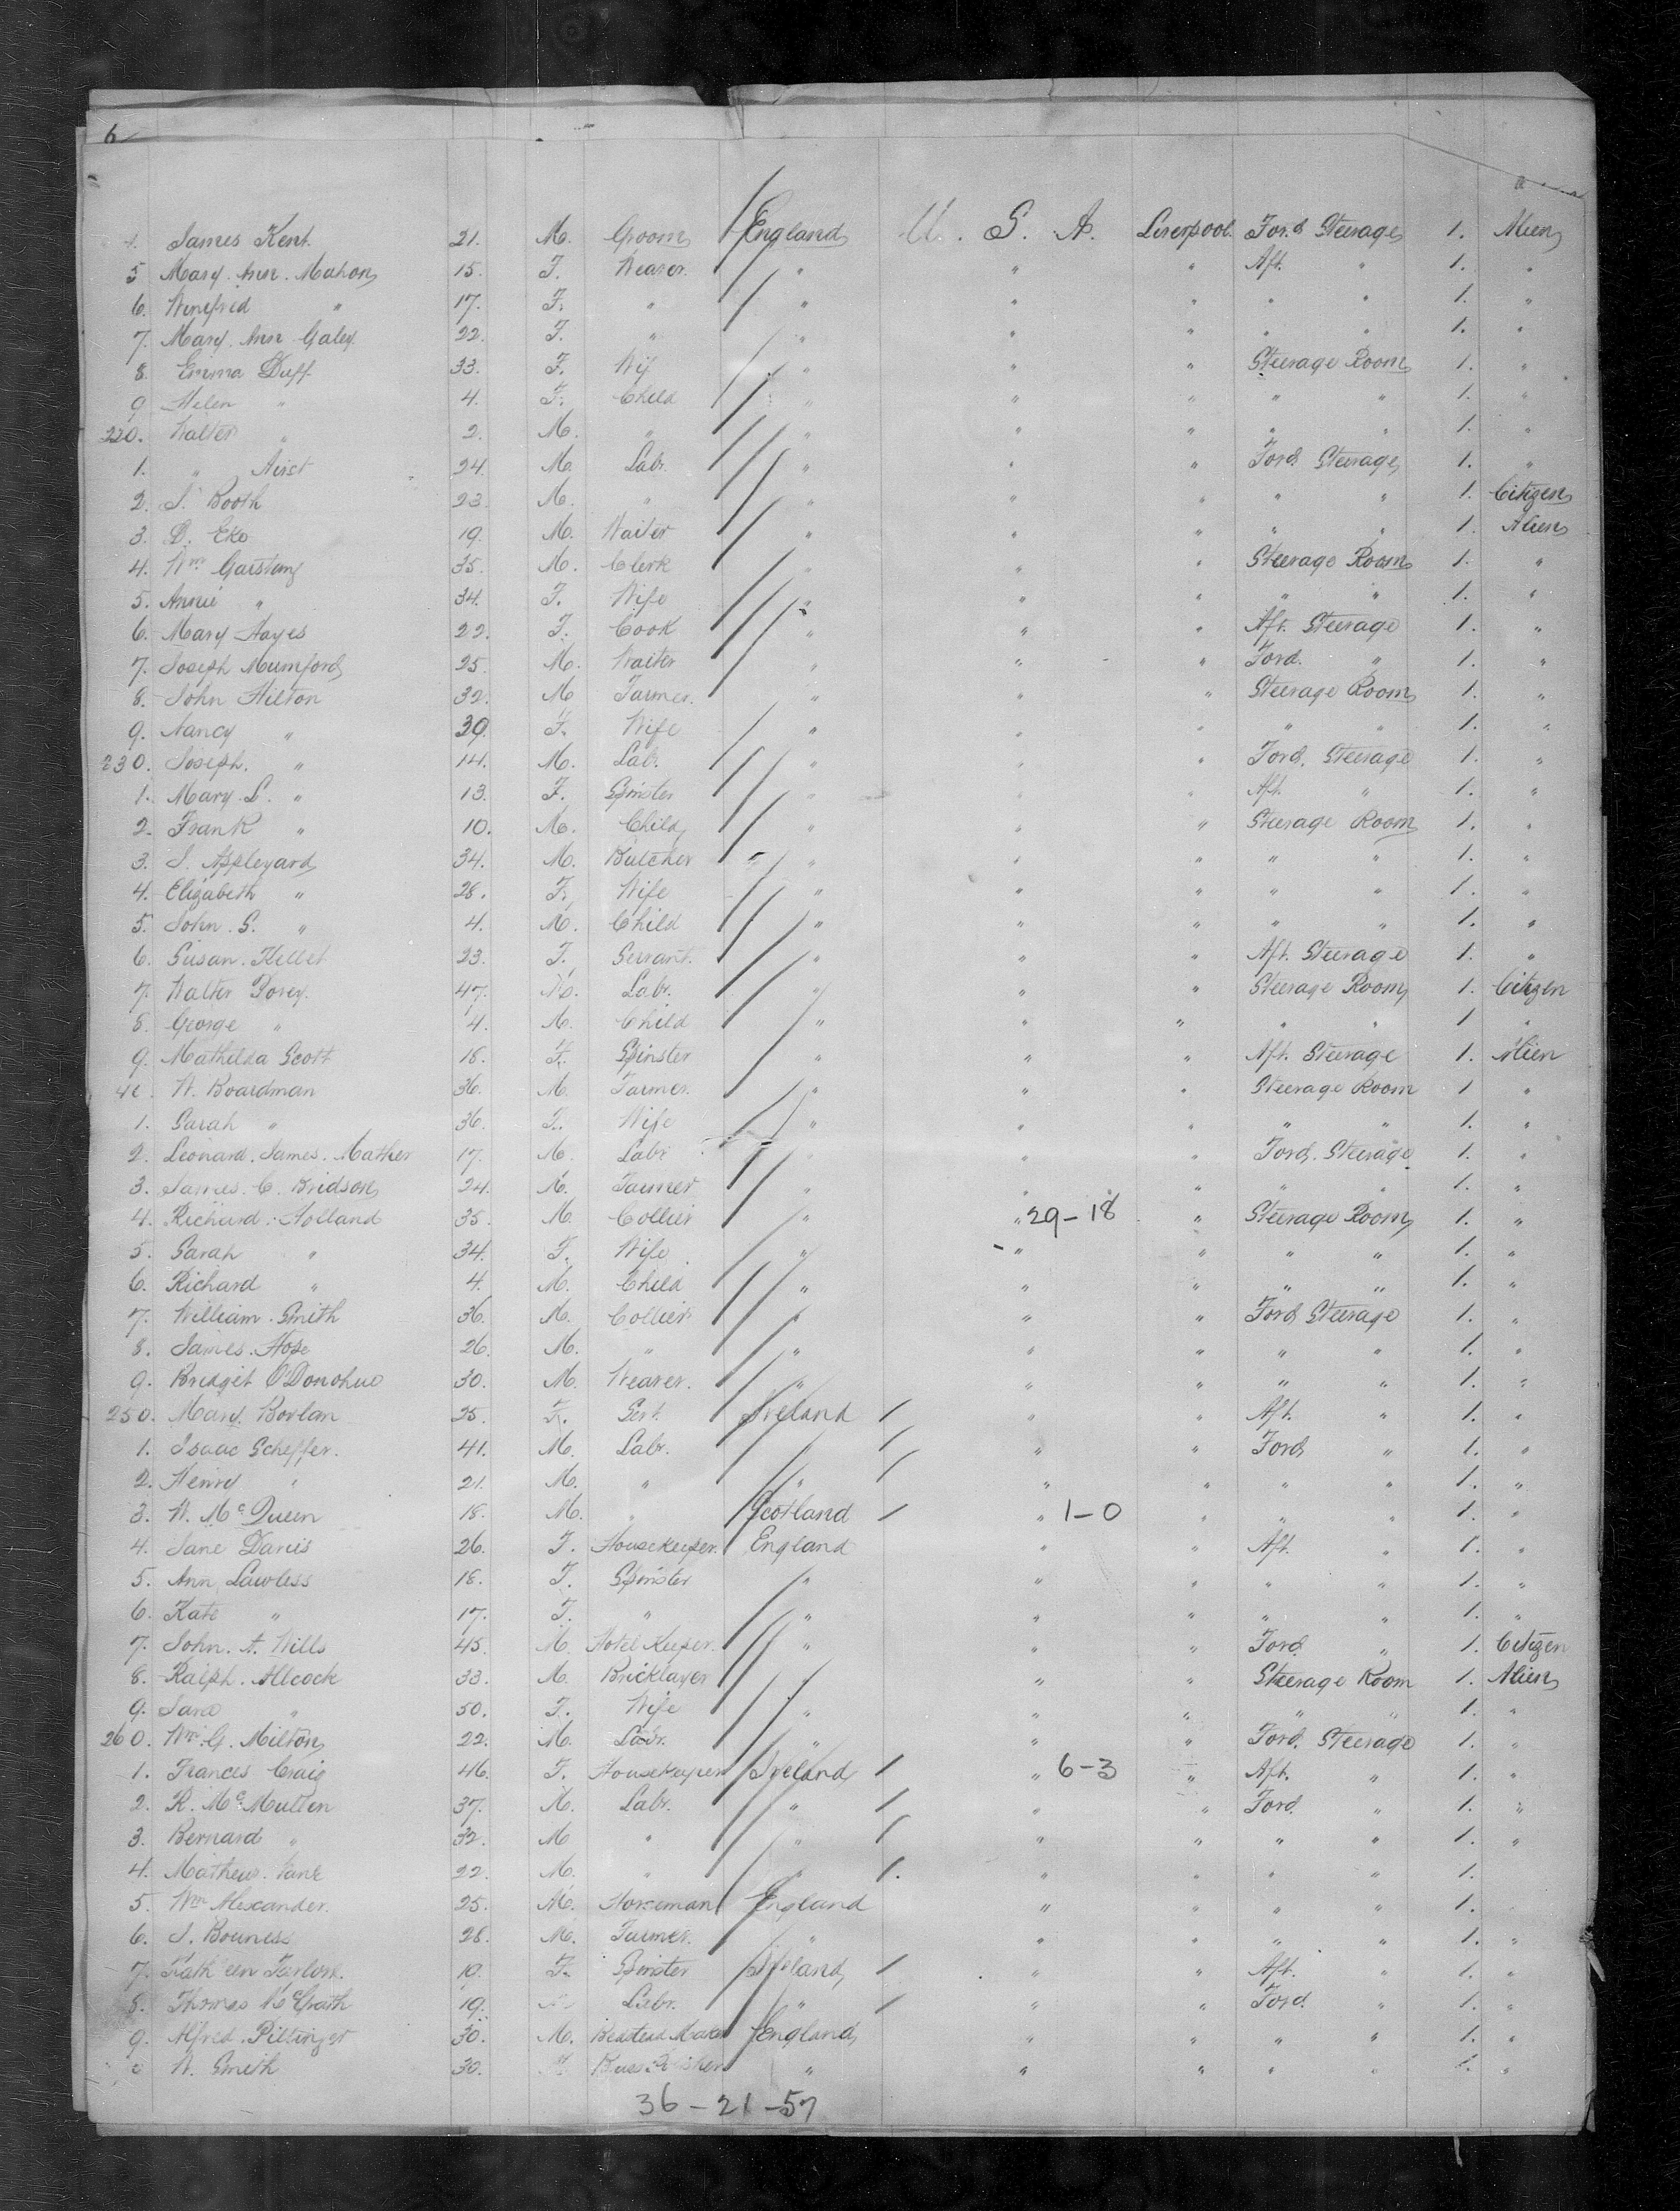 6
4. James Kent 21. M. Groom England U. S. A. Liverpool. Ford Steerage 1. Alien
5 Mary Ann Mahon 15. F. Weaver. " " " Aft. " 1. "
6. Winefred " 17. F. " " " " " " 1. "
7. Mary Ann Galey 22. F. " " " " " " 1. "
8. Emma Duff 33. F. Wif " " " Steerage Room 1. "
9 Helen " 4. F. Child " " " " " 1. "
220. Walter " 2. M. " " " " " " 1. "
1. " Hirst 24. M. Labr. " " " Ford Steerage 1. "
2. J. Booth 23 M. " " " " " " 1. Citizen
3. D. Eko 19. M. Waiter " " " " " 1. Alien
4. Wm Garstang 35. M. Clerk " " " Steerage Room 1. "
5. Annie " 34. F. Wife " " " " " 1. "
6. Mary Hayes 22. F. Cook " " " Aft. Steerage 1. "
7. Joseph Mumford 25. M. Waiter " " " Ford. " 1. "
8. John Hilton 32. M Farmer. " " " Steerage Room 1. "
9. Nancy " 39. F. Wife " " " " " 1. "
230. Joseph. " 14. M. Lab. " " " Ford. Steerage 1. "
1. Mary L. " 13. F. Spinster " " " Aft. " 1. "
2. Frank " 10. M. Child " " " Steerage Room 1. "
3. J. Appleyard 34. M. Butcher " " " " " 1. "
4. Elizabeth " 28. F. Wife " " " " " 1. "
5. John. S. " 4. M. Child " " " " " 1. "
6. Susan. Kellet 23. F. Servant. " " " Aft. Steerage 1. "
7. Walter Povey. 47. M. Labr. " " " Steerage Room 1. Citizen
8. George " 4. M. Child " " " " " 1 "
9. Mathilda Scott 18. F. Spinster " " " Aft. Steerage 1. Alien
40. W. Boardman 36. M. Farmer. " " " Steerage Room 1 "
1. Sarah " 36. F. Wife " " " " " 1. "
2. Leonard. James. Mather 17. M. Labr " " " Ford. Steerage 1. "
3. James. C. Bridson 24. M. Farmer " " " " " 1. "
4. Richard. Holland 35. M. Collier " " 29-18 " Steerage Room 1. "
5. Sarah " 34. F. Wife " " " " " 1. "
6. Richard " 4. M. Child " " " " " 1. "
7. William. Smith 36. M. Collier " " " Ford Steerage 1. "
8. James. Hope 26. M. " " " " " " 1. "
9. Bridget O'Donohue 30. M. Weaver. " " " " " 1. "
250. Mary. Boylan 25. F. Sert. Ireland / " " Aft. " 1. "
1. Isaac Scheffer. 41. M. Labr. " / " " Ford " 1. "
2. Henry " 21. M. " " / " " " " 1. "
3. W. McQueen 18. M. " Scotland / " 1-0 " " " 1. "
4. Jane Davis 26. F. Housekeeper. England " " Aft. " 1. "
5. Ann Lawless 18. F. Spinster " " " " " 1. "
6. Kate " 17. F. " " " " " " 1. "
7. John. A. Wills 45. M. Hotel Keeper. " " " Ford " 1. Citizen
8. Ralph. Allcock 33. M. Bricklayer " " " Steerage Room 1. Alien
9. Jane " 50. F. Wife " " " " " 1. "
260. Wm. G. Milton 22. M. Labr. " " " Ford. Steerage 1. "
1. Frances Craig 46. F. Housekeeper Ireland / " 6-3 " Aft. " 1. "
2. R. McMullen 37. M. Labr. " / " " Ford. " 1. "
3. Bernard " 32. M " " / " " " " 1. "
4. Mathew. 22. M. " " / " " " " 1.
5. Wm Alexander. 25. M. Horseman England " " " " 1.
6. J. Bouness 28. M. Farmer. " " " " " 1. "
7. 19. F. Spinster Ireland / " " Aft. " 1. "
8. Thomas McGrath 19. Labr. " / " " Ford. " 1. "
9. Alfred. Piltinger 30. M. Bedstead Maker England " " " " 1. "
W. Smith 30. " " " " " 1. "
36-21-57